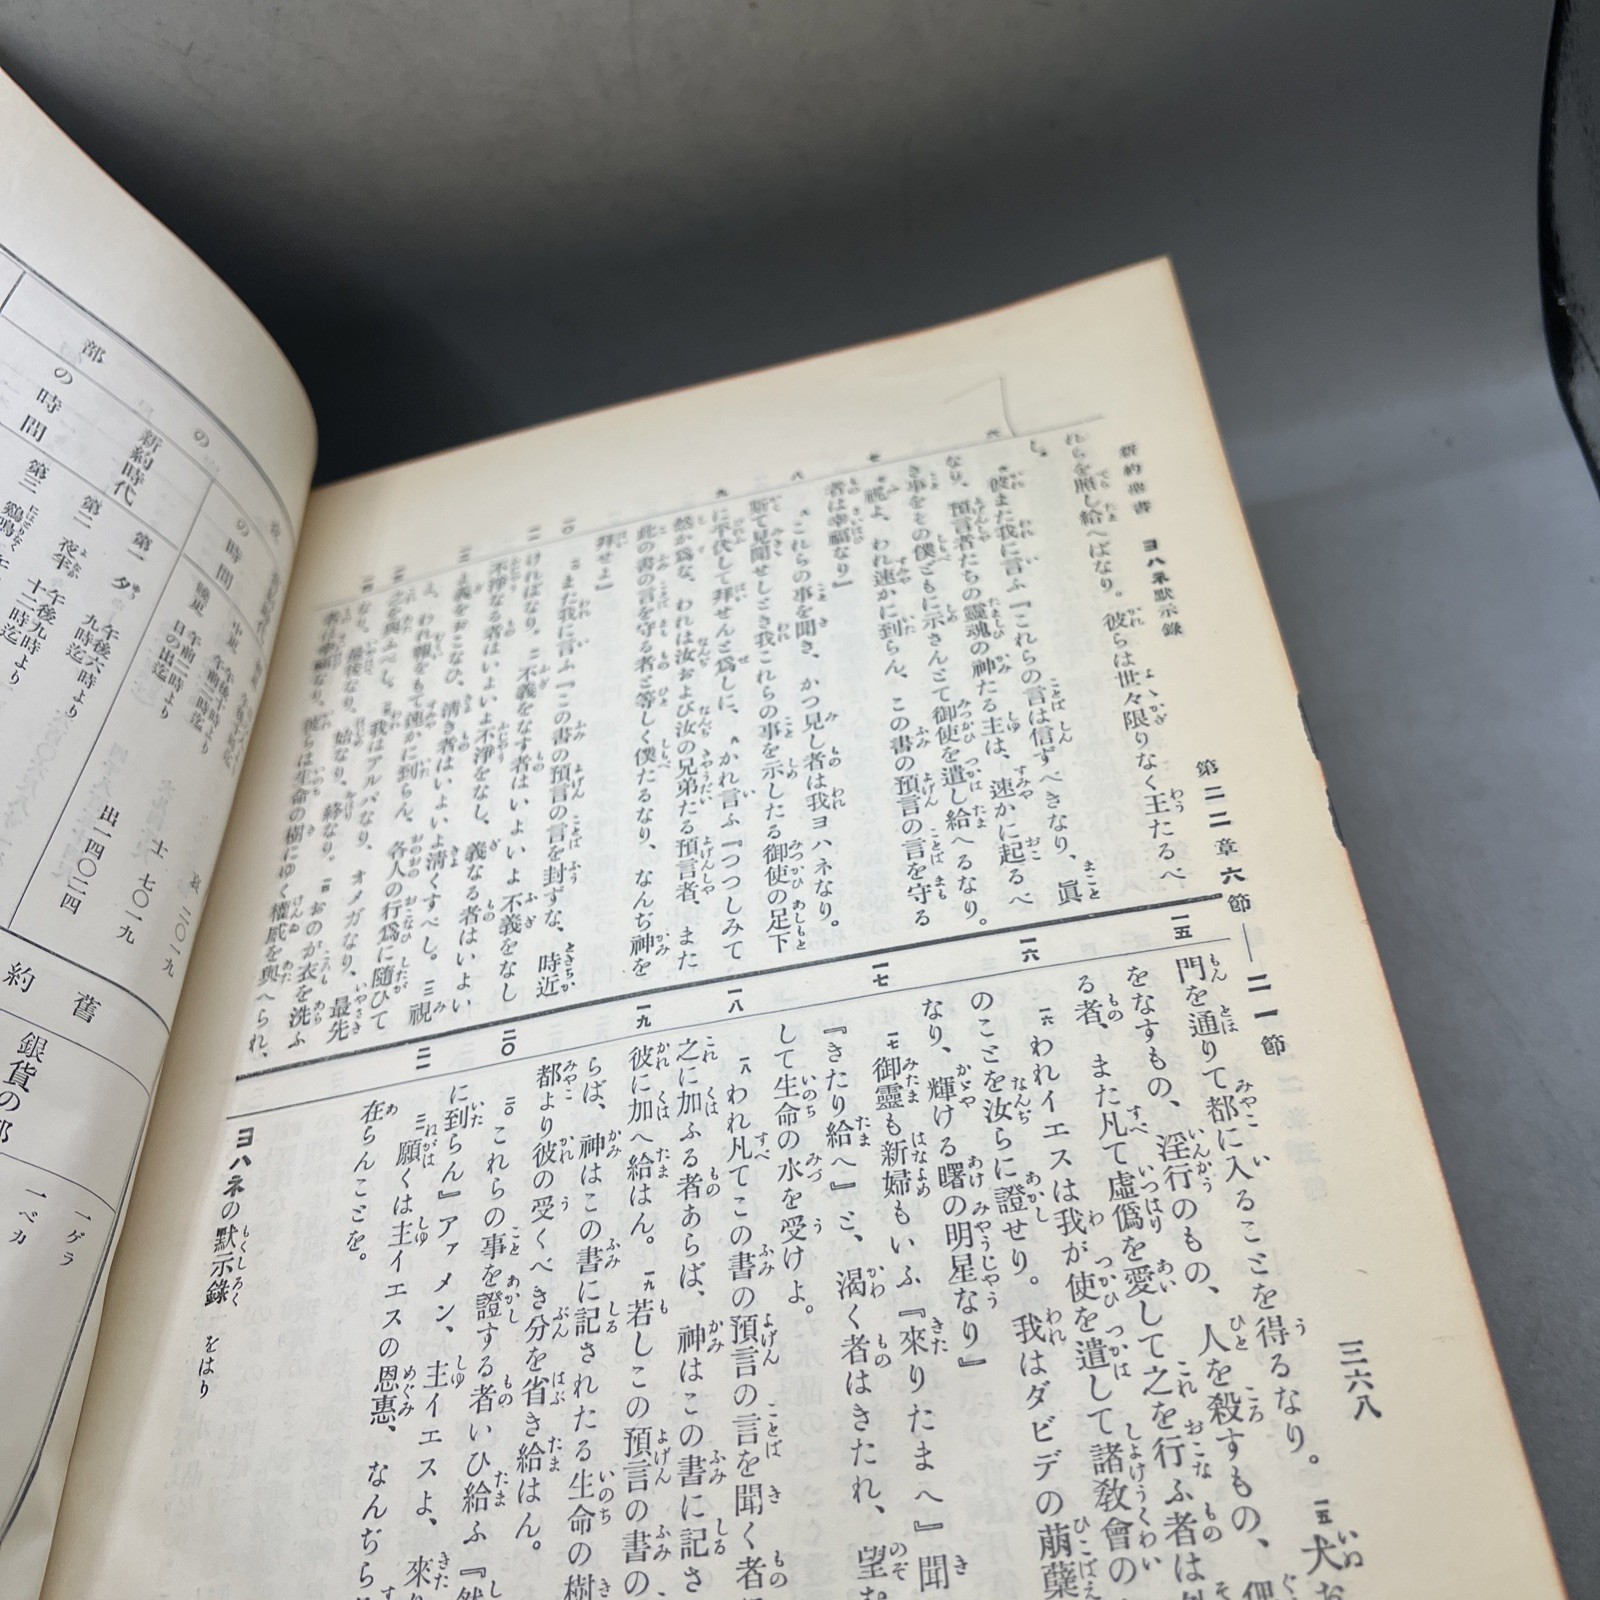 新約聖書 ヨハネ黙示録 第二二章六節——二一節 三六八
れらを照し給へばなり。彼らは世々限りなく王たるべ
し。
六 彼また我に言ふ『これらの言は信ずべきなり、眞
なり、預言者たちの靈魂の神たる主は、速かに起るべ
き事をその僕どもに示さんとて御使を遣し給へるなり。
七 視よ、われ速かに到らん、この書の預言の言を守る
者は幸福なり』
八 これらの事を聞き、かつ見し者は我ヨハネなり。
斯て見聞せしとき我これらの事を示したる御使の足下
に平伏して拜せんと爲しに、九 かれ言ふ『つつしみて
然か爲な、われは汝および汝の兄弟たる預言者、また
此の書の言を守る者と等しく僕たるなり、なんぢ神を
拜せよ』
一〇 また我に言ふ『この書の預言の言を封ずな、時近
ければなり。一一 不義をなす者はいよいよ不義をなし
不淨なる者はいよいよ不淨をなし、義なる者はいよい
よ義をおこなひ、清き者はいよいよ清くすべし。一二 視
よ、われ報をもて速かに到らん、各人の行爲に隨ひて
之を與ふべし。一三 我はアルパなり、オメガなり、最先
なり、最後なり、始なり、終なり。一四 おのが衣を洗ふ
者は幸福なり、彼らは生命の樹にゆく權威を與へられ、
門を通りて都に入ることを得るなり。一五 犬お
をなすもの、淫行のもの、人を殺すもの、偶
る者、また凡て虚僞を愛して之を行ふ者は外
一六 われイエスは我が使を遣して諸教會の
のことを汝らに證せり。我はダビデの萠蘖
なり、輝ける曙の明星なり』
一七 御靈も新婦もいふ『來りたまへ』聞
『きたり給へ』と、渴く者はきたれ、望む
して生命の水を受けよ。
一八 われ凡てこの書の預言の言を聞く者に
之に加ふる者あらば、神はこの書に記さ
彼に加へ給はん。一九 若しこの預言の書の
らば、神はこの書に記されたる生命の樹
都より彼の受くべき分を省き給はん。
二〇 これらの事を證する者いひ給ふ『然
に到らん』アァメン、主イエスよ、來り
二一 願くは主イエスの恩惠、なんぢら
在らんことを。
ヨハネの默示錄 をはり
部の時間
新約時代
第一 夕 午後六時より 九時迄
第二 夜半 午後九時より 十二時迄
第三 鷄鳴
の時間
曉更 午前二時より 日の出迄
士 七〇一九
出 一四〇二四
哀 二〇一九
舊約
銀貨の部
一ゲラ
一ベカ